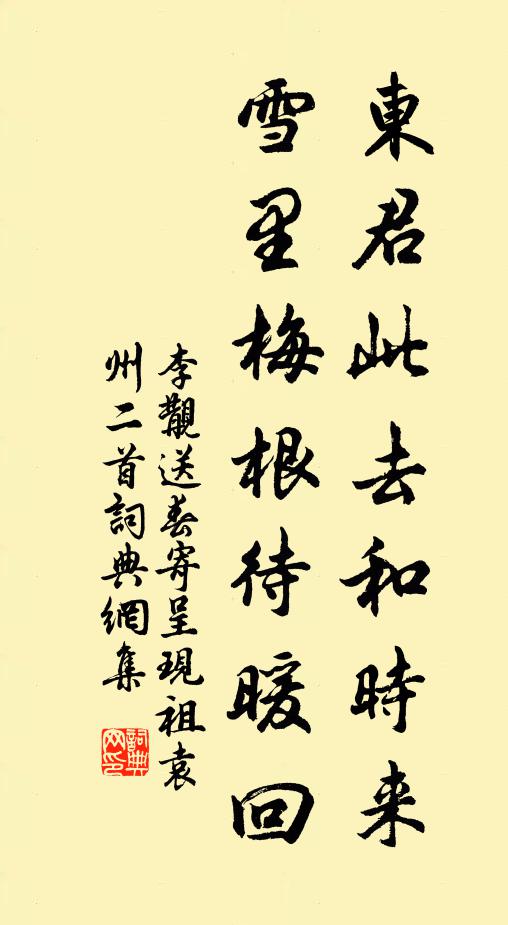 東君此去和時来
雪里梅根待暖回
李覯送春寄呈現祖袁
州二首詞典網集
詞典
网印